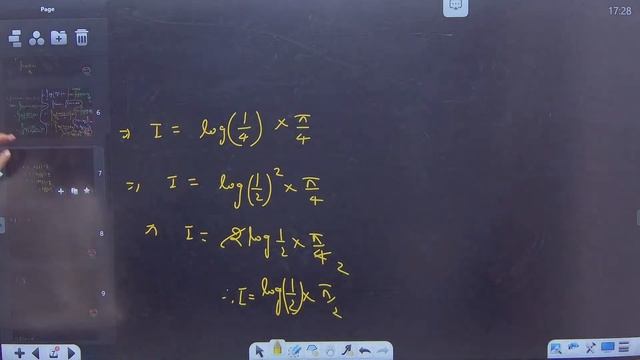 Page
17:28
6
⇒ I = log(1/4) × π/4
7
⇒ I = log(1/2)² × π/4
8
⇒ I = 2 log 1/2 × π/4 2
9
∴ I = log(1/2) × π/2